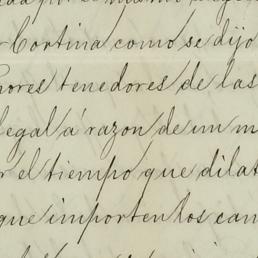 Cortina como se dijo
nores tenedores de las
legal a razon de un m
r el tiempo que dilat
que importen los can